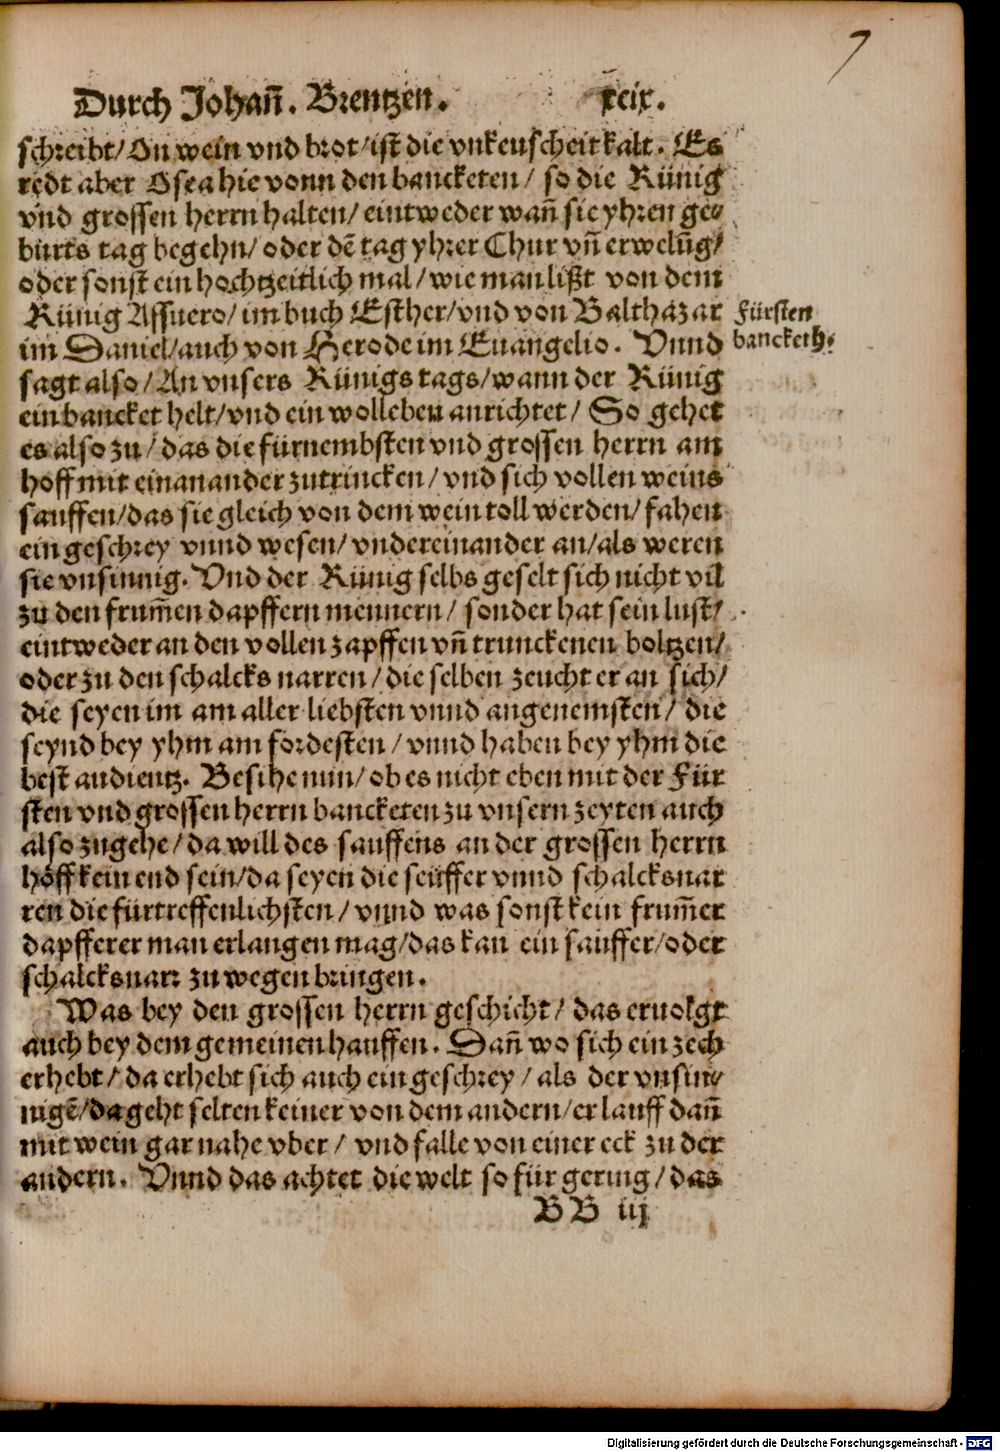 7
Durch Johañ. Brentzen. xcix.
schreibt/On wein vnd brot/ist die vnkeuscheit kalt. Es
redt aber Osea hie vonn den bancketen/ so die Künig
vnd grossen herrn halten/ eintweder wañ sie yhren ge⸗
burts tag begehn/ oder dẽ tag yhrer Chur vñ erwelũg/
oder sonst ein hochtzeitlich mal/ wie man lißt von dem
Künig Assuero/ im buch Esther/ vnd von Balthazar
im Daniel/auch von Herode im Euangelio. Vnnd
sagt also/ An vnsers Künigs tags/wann der Künig
ein bancket helt/vnd ein wolleben anrichtet/ So gehet
es also zu/ das die fürnembsten vnd grossen herrn am
hoff mit einanander zutrincken/ vnd sich vollen weins
sauffen/das sie gleich von dem wein toll werden/ fahen
ein geschrey vnnd wesen/ vndereinander an/als weren
sie vnsinnig. Vnd der Künig selbs geselt sich nicht vil
zu den frum̃en dapffern mennern/ sonder hat sein lust/
eintweder an den vollen zapffen vñ trunckenen boltzen/
oder zu den schalcks narren/ die selben zeucht er an sich/
die seyen im am aller liebsten vnnd angenemsten/ die
seynd bey yhm am fordesten/ vnnd haben bey yhm die
best audientz. Besihe nun/ ob es nicht eben mit der Für
sten vnd grossen herrn bancketen zu vnsern zeyten auch
also zugehe/ da will des sauffens an der grossen herrn
höff kein end sein/da seyen die seüffer vnnd schalcksnar
ren die fürtreffenlichsten/ vnnd was sonst kein frum̃er
dapfferer man erlangen mag/das kan ein sauffer/oder
schalcksnarr zu wegen bringen.
Was bey den grossen herrn geschicht/ das eruolgt
auch bey dem gemeinen hauffen. Dañ wo sich ein zech
erhebt/ da erhebt sich auch ein geschrey/ als der vnsin⸗
nigẽ/da geht selten keiner von dem andern/er lauff dañ
mit wein gar nahe vber/ vnd falle von einer eck zu der
andern. Vnnd das achtet die welt so für gering/ das
BB iij
Fürsten
bancketh.
Digitalisierung gefördert durch die Deutsche Forschungsgemeinschaft - DFG